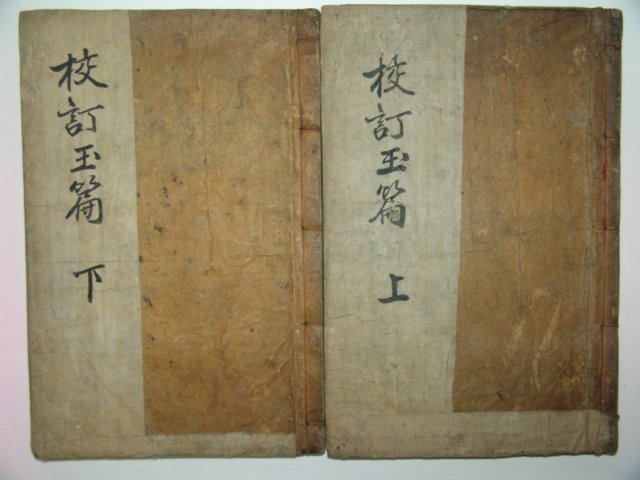 校訂玉篇 上
校訂玉篇 下